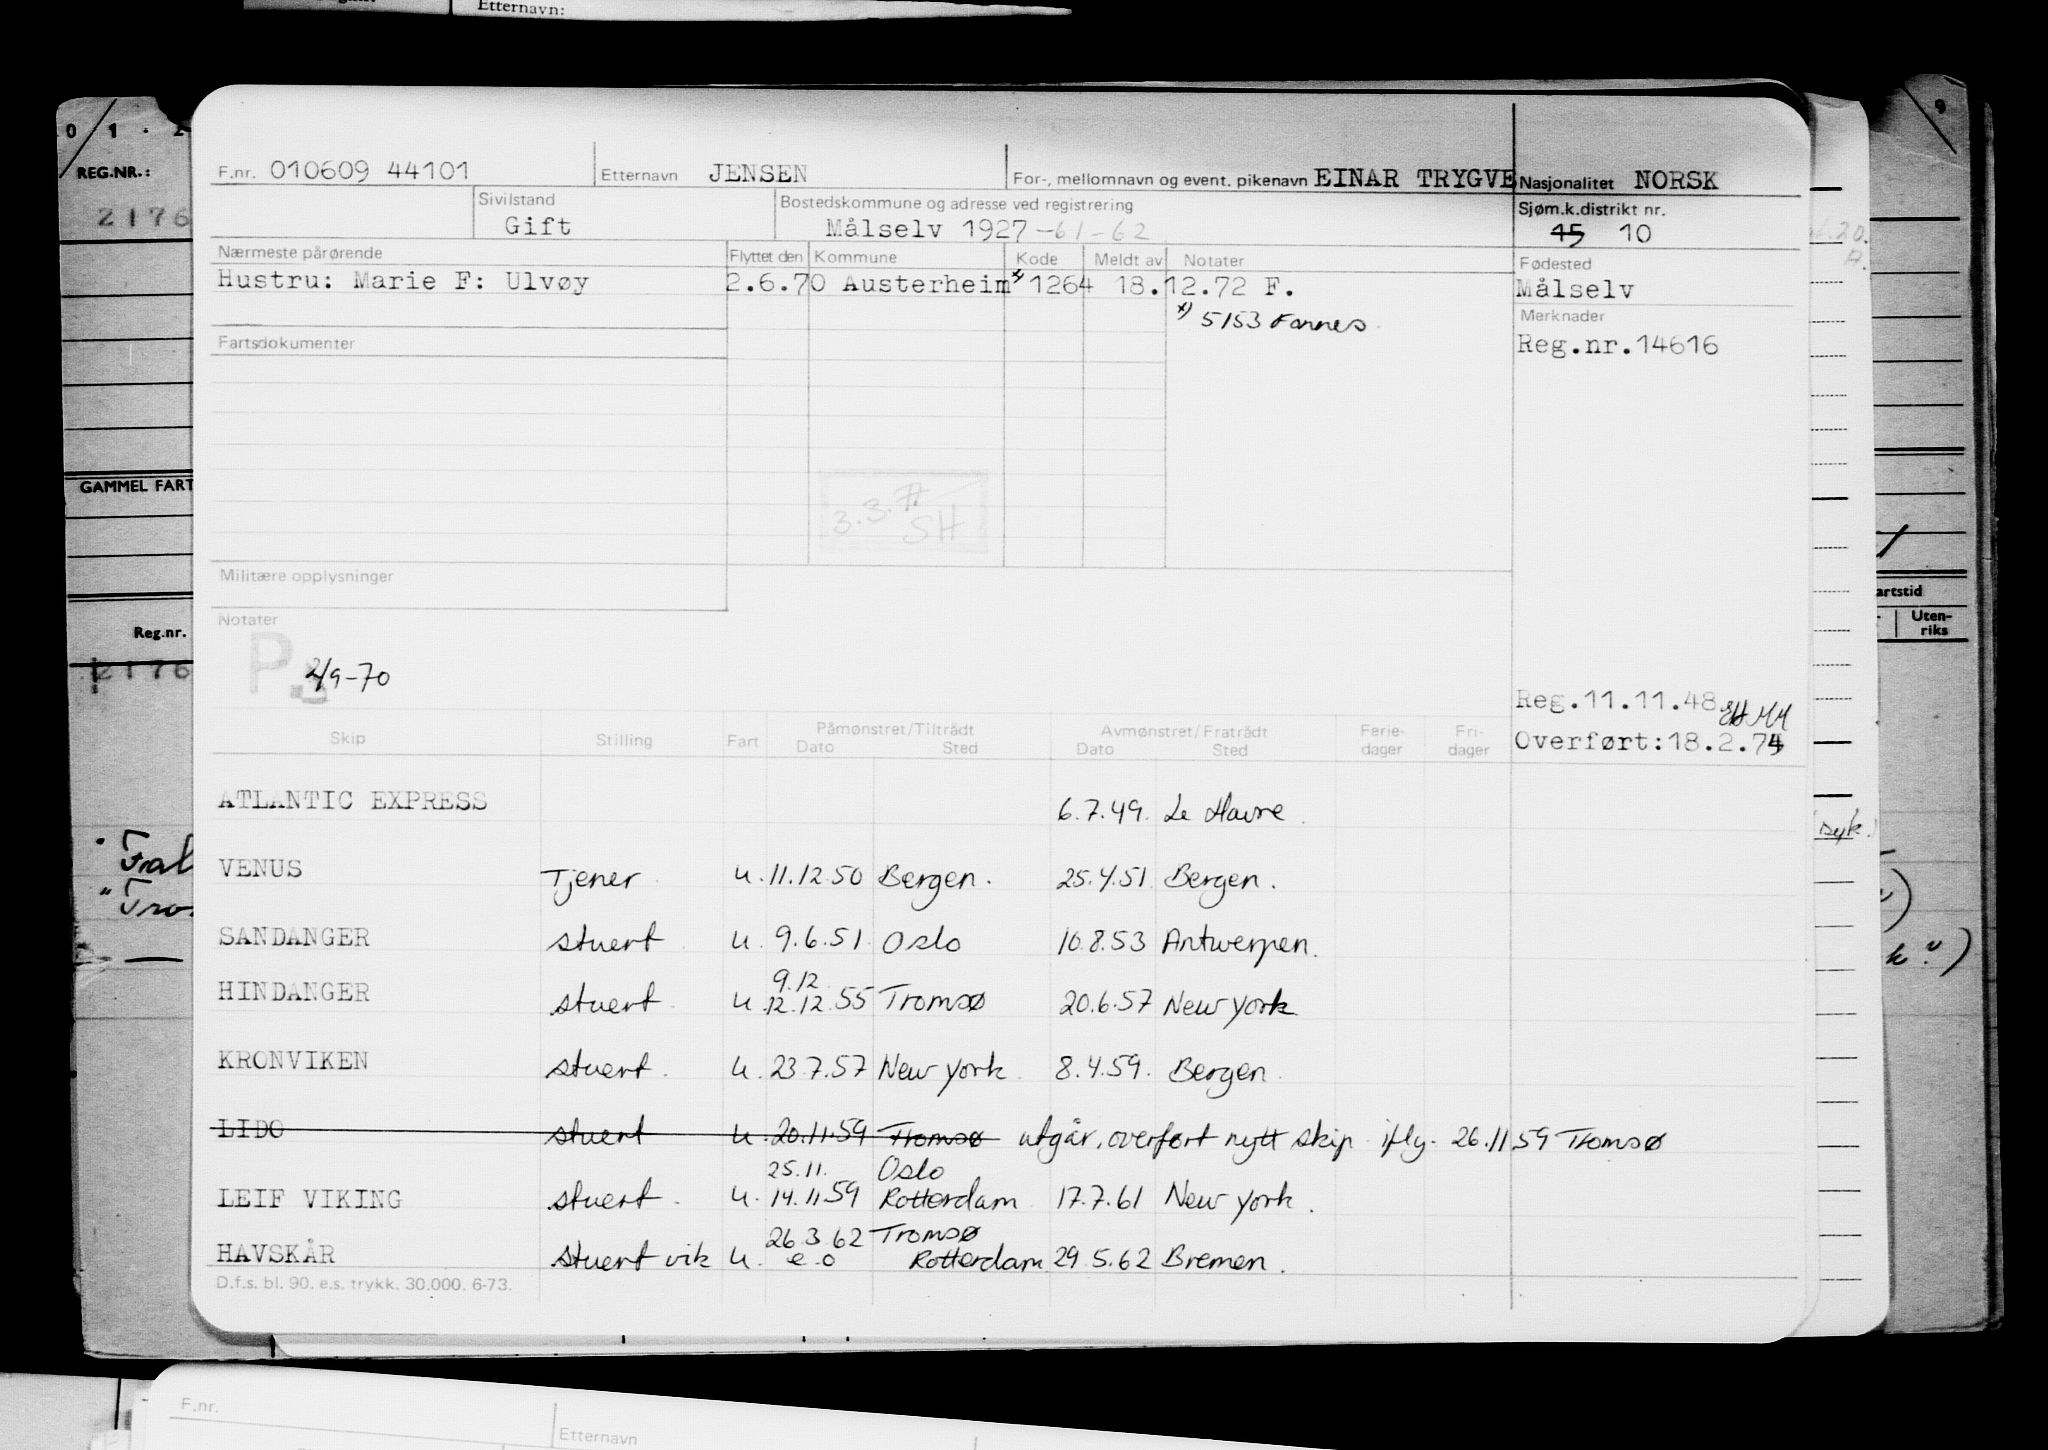 Etternavn:
REG.NR.:
2176
GAMMEL FART
Reg.nr.
2176
F.nr. 010609 44101 Etternavn JENSEN For-, mellomnavn og event. pikenavn EINAR TRYGVE Nasjonalitet NORSK
Sivilstand Gift Bostedskommune og adresse ved registrering Målselv 1927-61-62 Sjøm.k.distrikt nr. 15 10
Nærmeste pårørende Flyttet den Kommune Kode Meldt av Notater Fødested
Hustru: Marie F: Ulvøy 2.6.70 Austerheim x) 1264 18.12.72 F. Målselv
x) 5153 Fonnes Merknader
Fartsdokumenter Reg.nr.14616
3.3.77 SH
Militære opplysninger
Notater
P. 2/9-70
Reg.11.11.48
Overført:18.2.74
Skip Stilling Fart Påmønstret/Tiltrådt Dato Sted Avmønstret/Fratrådt Dato Sted Ferie-dager Fri-dager
ATLANTIC EXPRESS 6.7.49. Le Havre.
VENUS Tjener u. 11.12.50 Bergen. 25.4.51. Bergen.
SANDANGER stuert u. 9.6.51. Oslo 10.8.53 Antwerpen.
9.12.
HINDANGER stuert u. 12.12.55 Tromsø 20.6.57 New York
KRONVIKEN stuert. u. 23.7.57 New York 8.4.59. Bergen.
LIDO stuert u. 20.11.59 Tromsø utgår, overført nytt skip iflg. 26.11.59 Tromsø
25.11. Oslo
LEIF VIKING stuert. u. 14.11.59 Rotterdam 17.7.61 New York.
26.3.62 Tromsø
HAVSKÅR Stuert vik u. e.o Rotterdam 29.5.62 Bremen.
D.f.s. bl. 90. e.s. trykk. 30.000. 6-73.
artstid
Uten-
riks
F.nr.
Etternavn